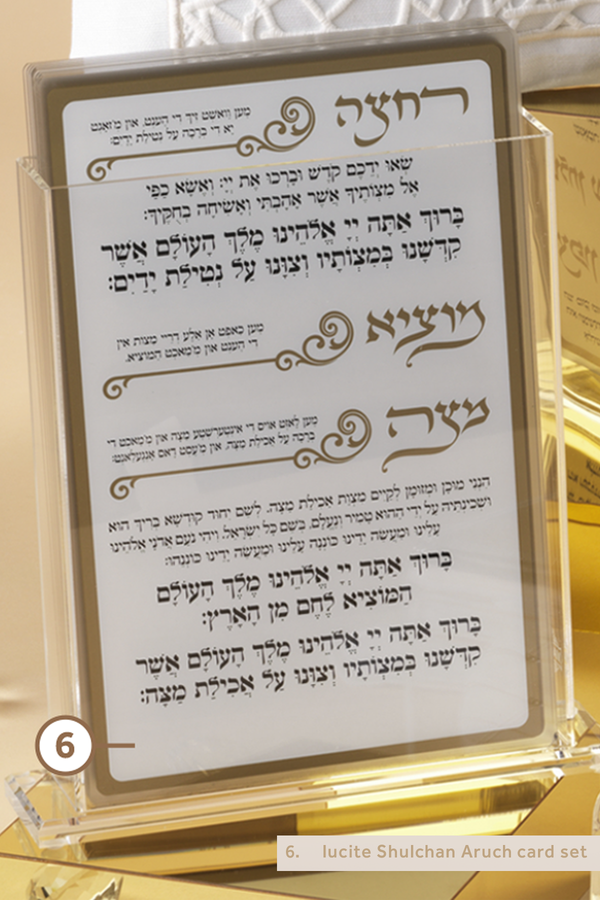 רחצה
מען וואשט זיך די הענט, און מ'זאגט
יא די ברכה על נטילת ידים:
שְׂאוּ יְדֵכֶם קֹדֶשׁ וּבָרְכוּ אֶת יְיָ: וְאֶשָּׂא כַפַּי
אֶל מִצְוֹתֶיךָ אֲשֶׁר אָהָבְתִּי וְאָשִׂיחָה בְחֻקֶּיךָ:
בָּרוּךְ אַתָּה יְיָ אֱלֹהֵינוּ מֶלֶךְ הָעוֹלָם אֲשֶׁר
קִדְּשָׁנוּ בְּמִצְוֹתָיו וְצִוָּנוּ עַל נְטִילַת יָדַיִם:
מוציא
מען כאפט אן אלע דריי מצות אין
די הענט און מ'מאכט המוציא.
מצה
מען לאזט אויס די אינטערשטע מצה און מ'מאכט די
ברכה על אכילת מצה, און מ'עסט דאס אנגעלאנט:
הנני מוכן ומזומן לקיים מצות אכילת מצה. לשם יחוד קודשא בריך הוא
ושכינתיה על ידי ההוא טמיר ונעלם, בשם כל ישראל. ויהי נעם אדני אלהינו
עלינו ומעשה ידינו כוננה עלינו ומעשה ידינו כוננהו:
בָּרוּךְ אַתָּה יְיָ אֱלֹהֵינוּ מֶלֶךְ הָעוֹלָם
הַמּוֹצִיא לֶחֶם מִן הָאָרֶץ:
בָּרוּךְ אַתָּה יְיָ אֱלֹהֵינוּ מֶלֶךְ הָעוֹלָם אֲשֶׁר
קִדְּשָׁנוּ בְּמִצְוֹתָיו וְצִוָּנוּ עַל אֲכִילַת מַצָּה:
6
6. lucite Shulchan Aruch card set